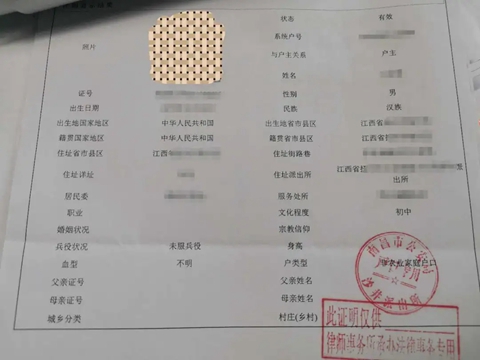 状态 有效
系统户号
照片
与户主关系 户主
姓名
证号 性别 男
出生日期 民族 汉族
出生地国家地区 中华人民共和国 出生地省市县区 江西省
籍贯国家地区 中华人民共和国 籍贯省市县区 江西省
住址省市县区 江西 住址街路巷
住址详址 住址派出所 江西省
出所
居民委 服务处所
职业 文化程度 初中
婚姻状况 宗教信仰
兵役状况 未服兵役 身高
血型 不明 户类型 农业家庭户口
父亲证号 父亲姓名
母亲证号 母亲姓名
城乡分类 村庄(乡村)
此证明仅供
律师事务所承办法律事务专用